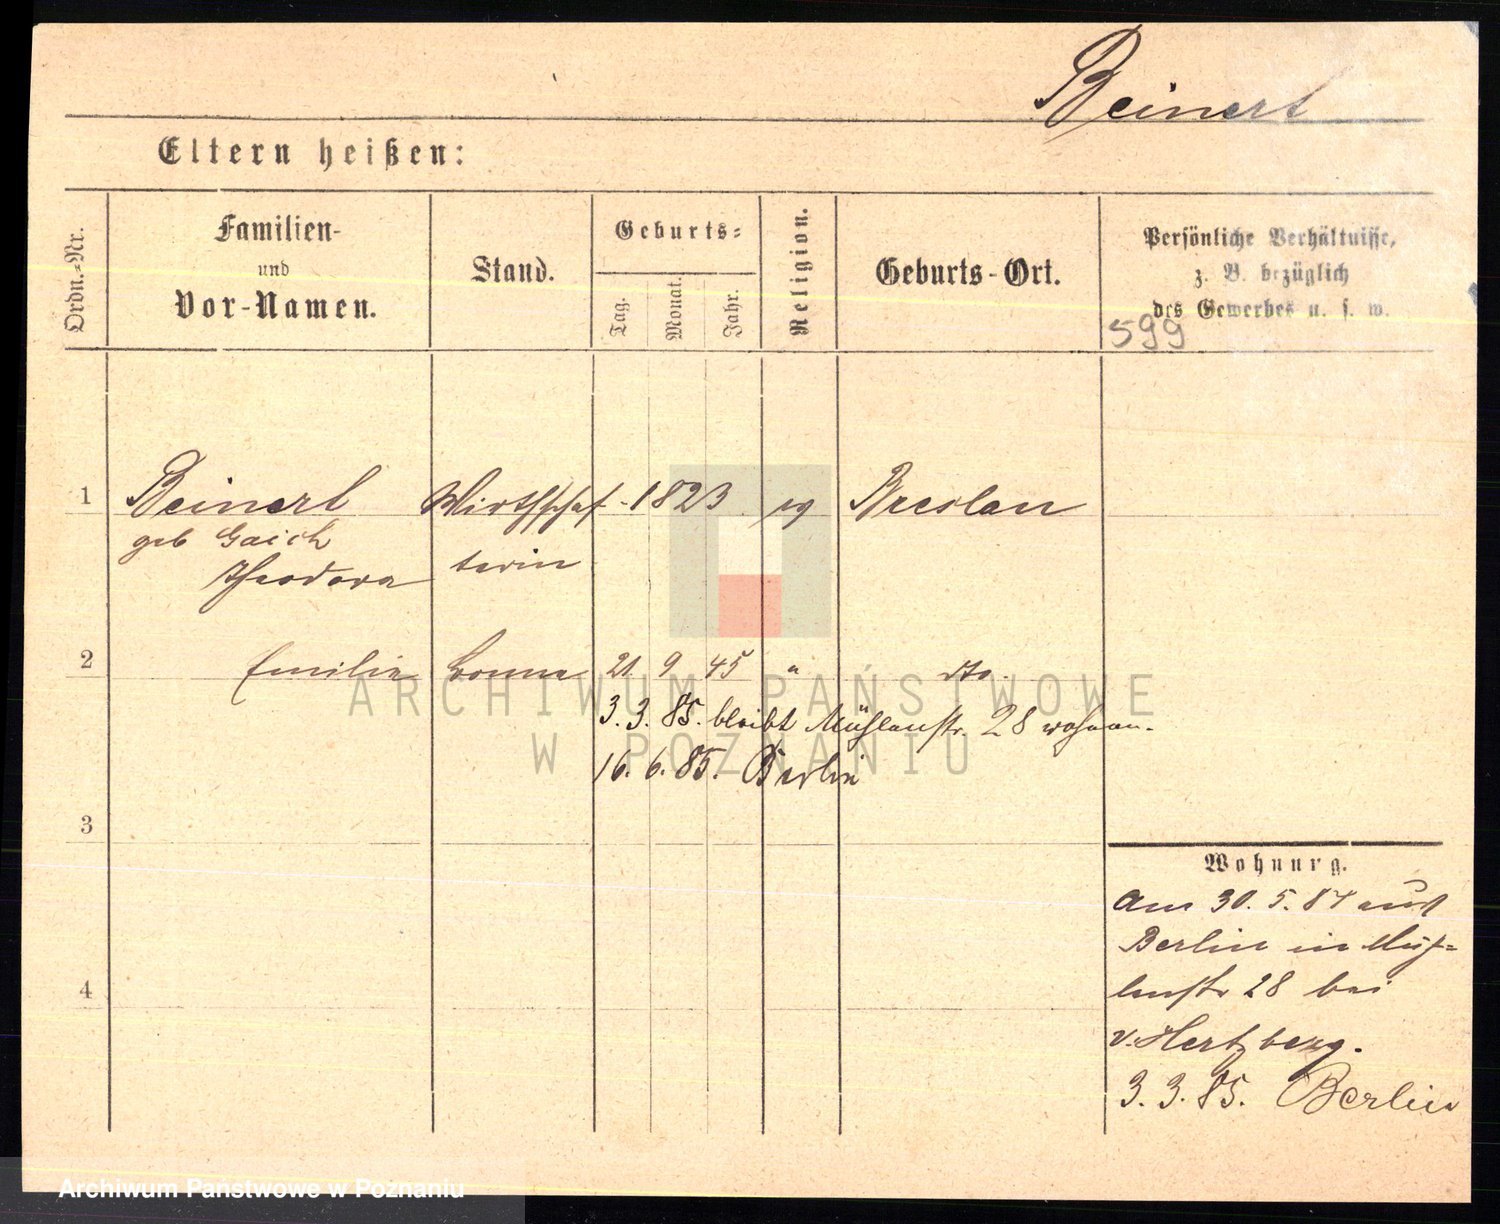 Beinert
Eltern heißen:
Ordn.-Nr.
Familien-
und
Vor-Namen.
Stand.
Geburts-
Tag.
Monat.
Jahr.
Religion.
Geburts-Ort.
Persönliche Verhältnisse,
z. B. bezüglich
des Gewerbes u. s. w.
599
1 Beinert Wirthschaf- 1823 Breslau
geb Gaich
Theodora terin
2 Emilie Bonne 21 9 45 " dto.
3. 3. 85. bleibt Mühlenstr. 28 wohnen.
16. 6. 85. Berlin
3
4
Wohnung.
Am 30. 5. 84 aus
Berlin in Müh-
lenstr 28 bei
v. Hertzberg.
3. 3. 85. Berlin
ARCHIWUM PAŃSTWOWE
W POZNANIU
Archiwum Państwowe w Poznaniu